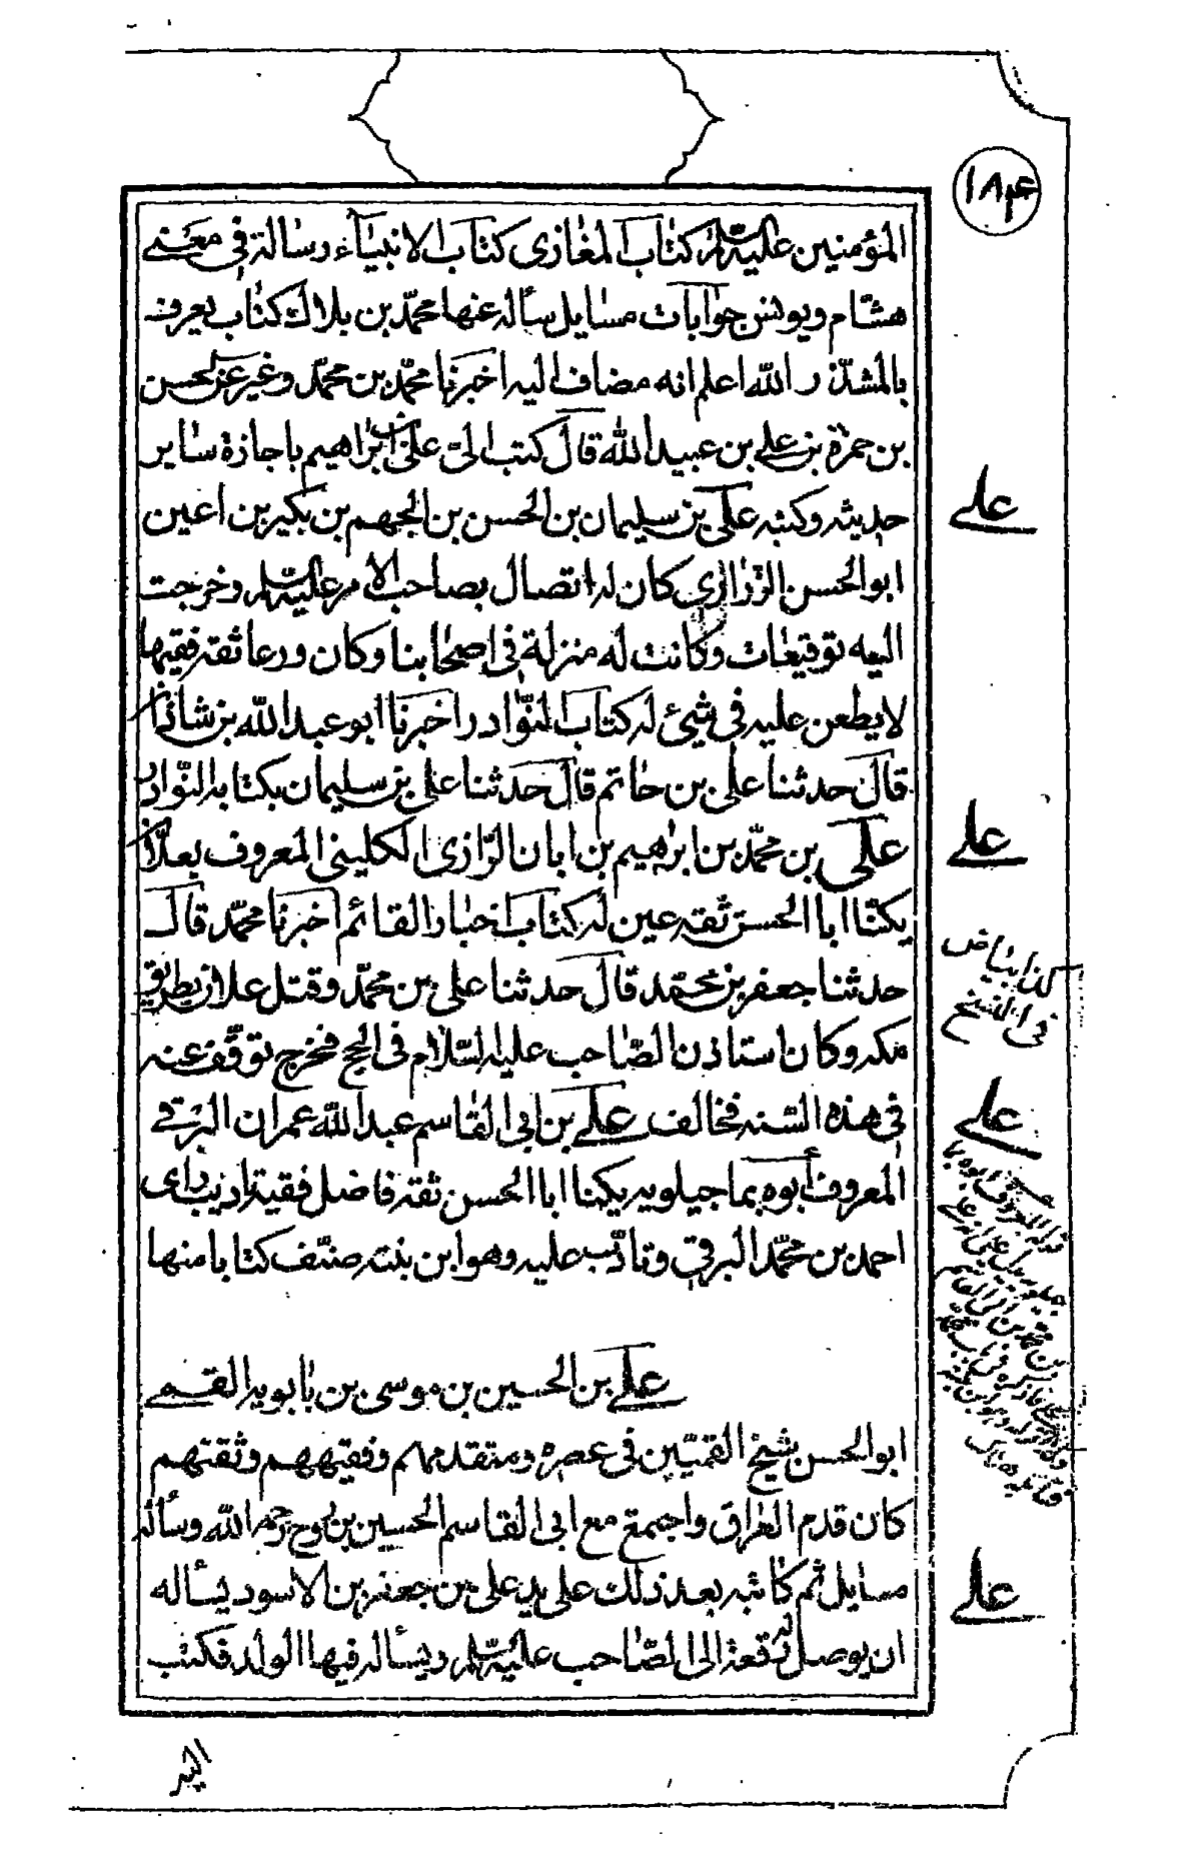 ١٨٤
المؤمنين عليه السلام كتاب المغازى كتاب الانبياء رسالة فى معنى
هشام ويونس جوابات مسايل سأله عنها محمّد بن بلال كتاب يعرف
بالمشذّر الله اعلم انه مضاف اليه اخبرنا محمّد بن محمّد وغيره عن الحسن
بن حمزة بن على بن عبيد الله قال كتب الىّ على بن ابراهيم باجازة ساير
حديثه وكتبه على بن سليمان بن الحسن بن الجهم بن بكير بن اعين
ابو الحسن الزرارى كان له اتصال بصاحب الامر عليه السلام وخرجت
اليه توقيعات وكانت له منزلة فى اصحابنا وكان ورعا ثقة فقيها
لا يطعن عليه فى شيئ له كتاب النّوادر اخبرنا ابو عبد الله بن شاذان
قال حدثنا على بن حاتم قال حدثنا على بن سليمان بكتابه النّوادر
على بن محمّد بن ابرهيم بن ابان الرّازى الكلينى المعروف بعلّان
يكنّا ابا الحسن ثقه عين له كتاب اخبار القائم اخبرنا محمّد قال
حدثنا جعفر بن محمّد قال حدثنا على بن محمّد وقتل علان بطريق
مكه وكان استاذن الصّاحب عليه السّلام فى الحج فخرج توقّف عنه
فى هذه السّنه فخالف على بن ابى القاسم عبد الله عمران البرقى
المعروف أبوه بماجيلويه يكنا ابا الحسن ثقه فاضل فقيه اديب راى
احمد بن محمّد البرقى وتادّب عليه وهو ابن بنته صنّف كتابا منها
على بن الحسين بن موسى بن بابويه القمى
ابو الحسن شيخ القميّين فى عصره ومتقدمهم وفقيههم وثقتهم
كان قدم العراق واجتمع مع ابى القاسم الحسين بن روح رحمه الله وسأله
مسايل ثم كاتبه بعد ذلك على يد على بن جعفر بن الاسود يسأله
ان يوصل له رقعة الى الصّاحب عليه السّلام ويسأله فيها الولد فكتب
اليه
على
على
كذا بياض
فى النسخ
على
على